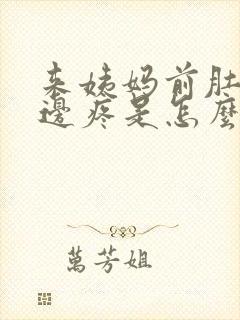 来姨妈前肚
邊疼是怎麼
萬芳姐